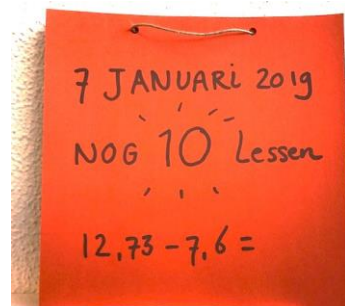 7 JANUARi 2019
NOG 10 Lessen
12,73 - 7,6 =